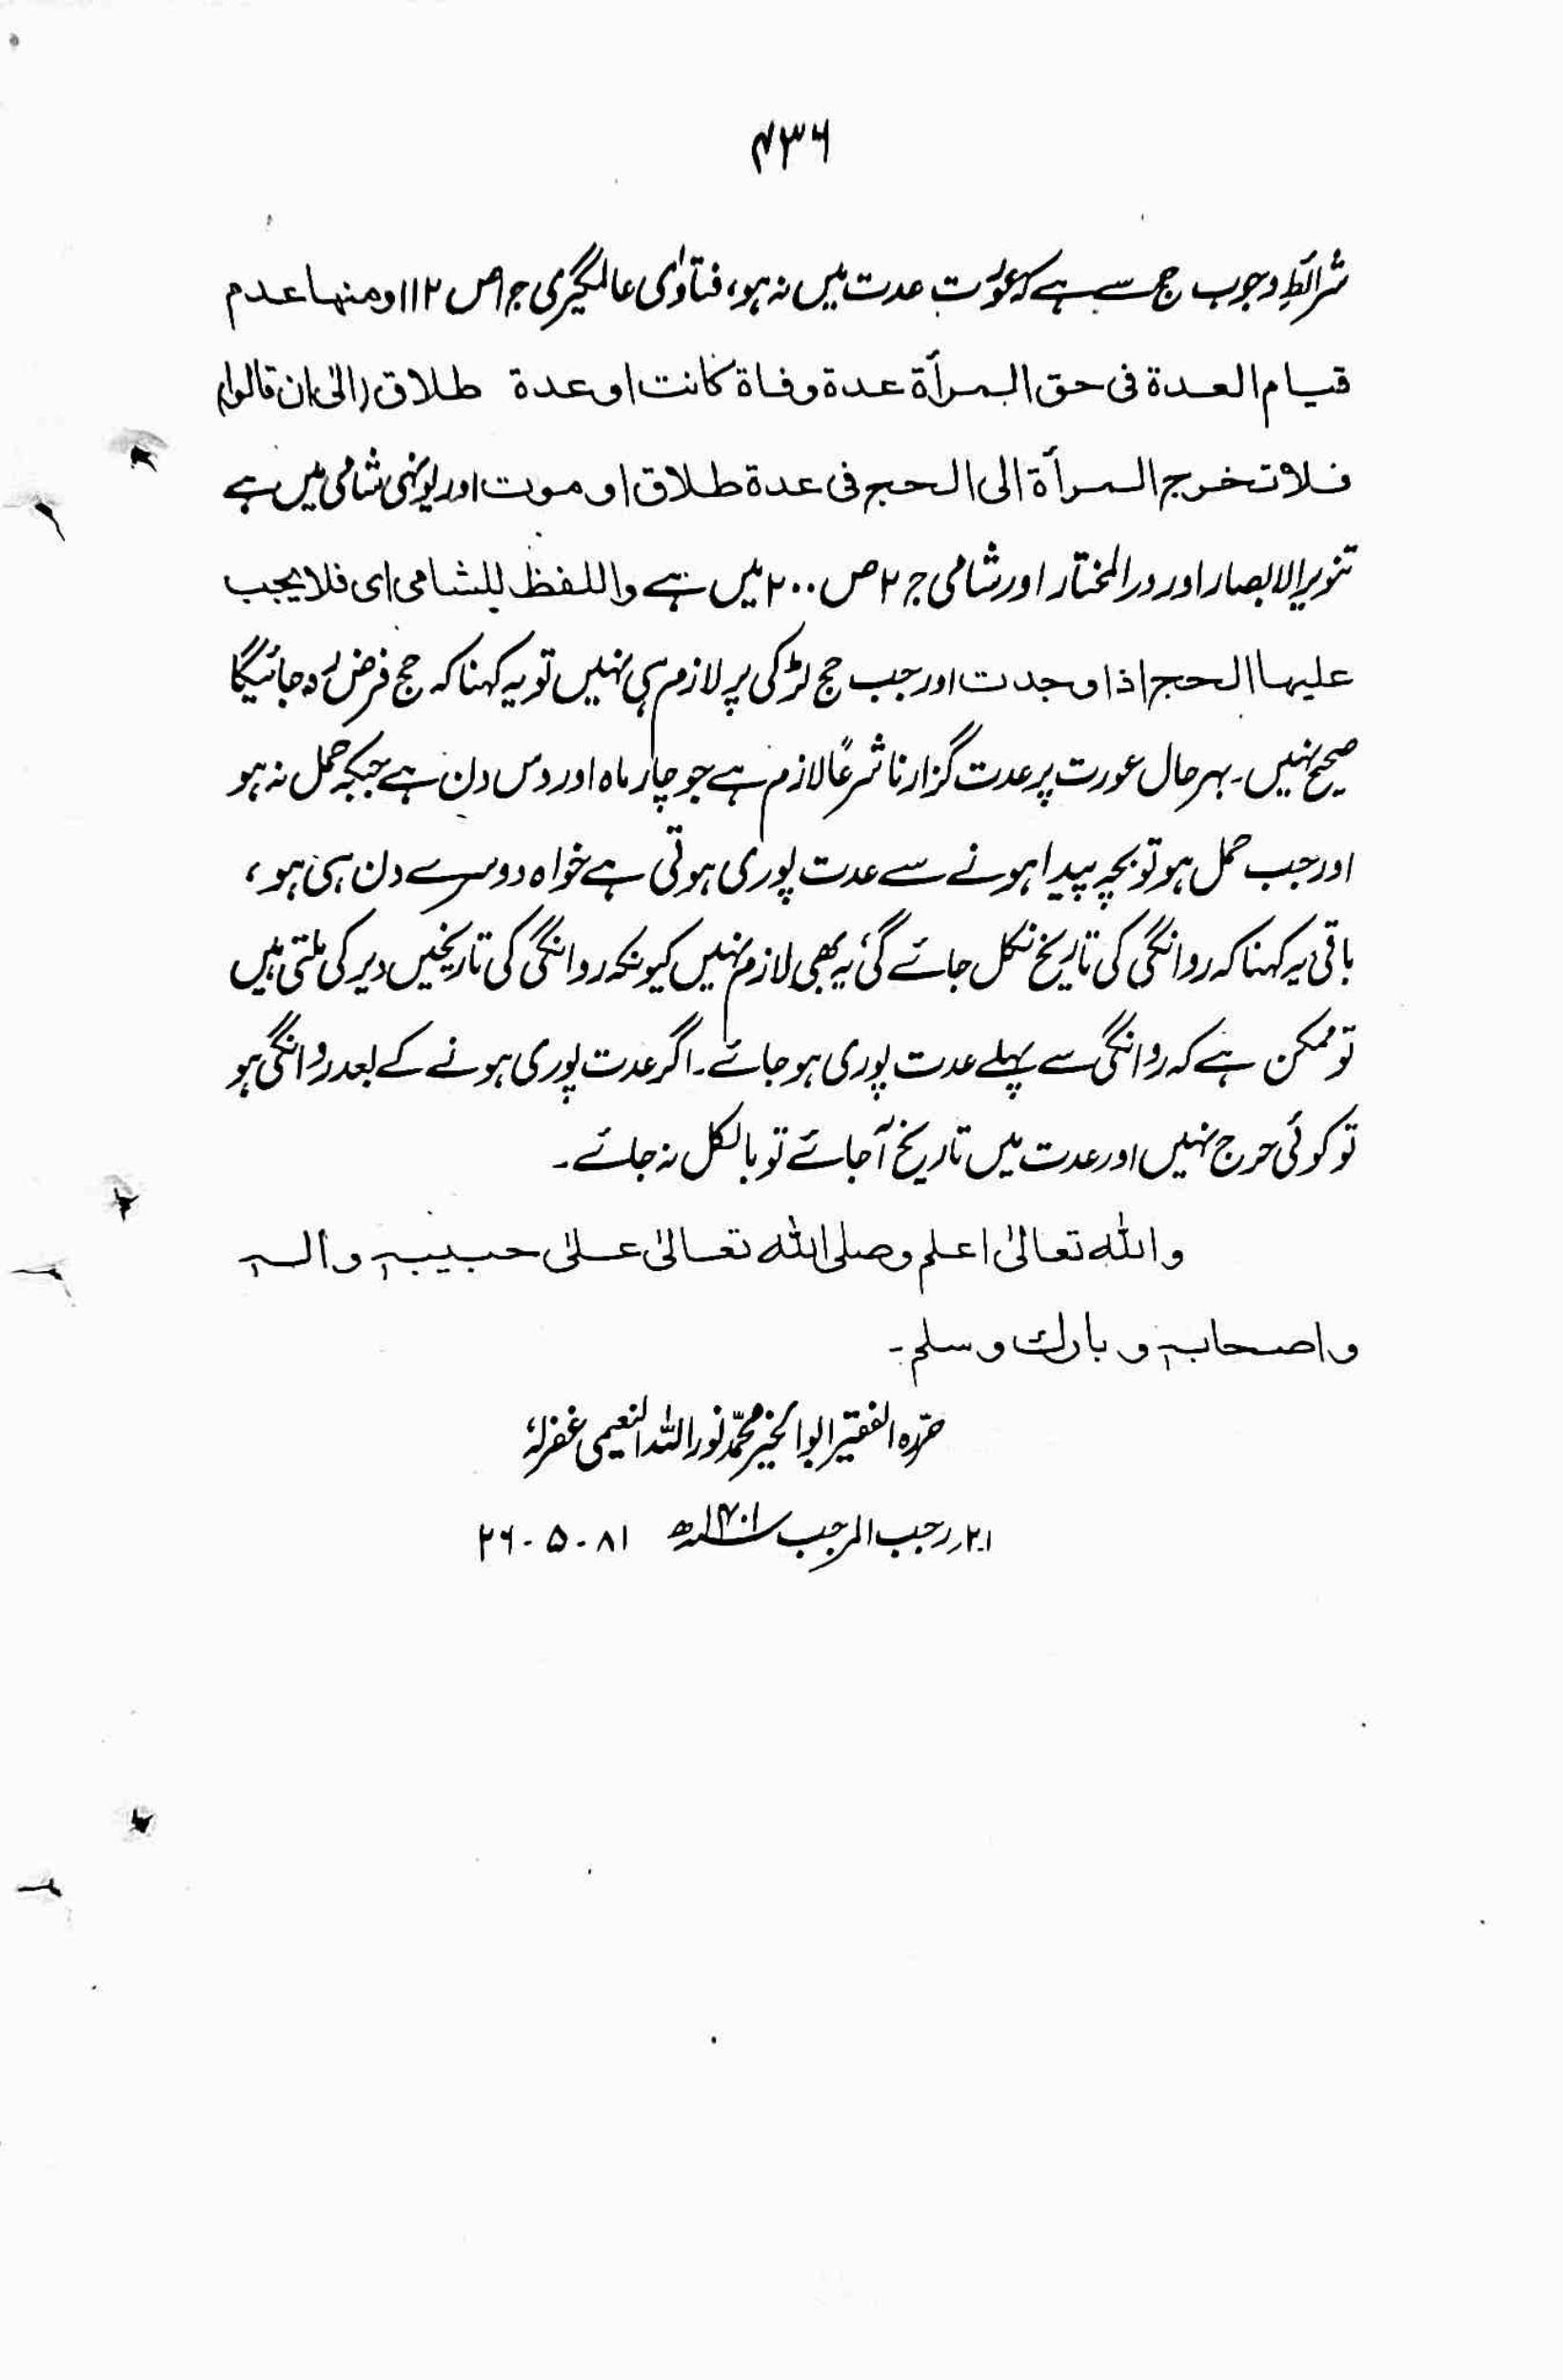 ۴۳۶
شرائطِ وجوب حج سے ہے کہ عورت عدت میں نہ ہو، فتاوٰی عالمگیری ج۱ ص ۱۱۲ ومنہا عدم
قیام العدۃ فی حق المرأۃ عدۃ وفاۃ کانت او عدۃ طلاق (الیٰ ان قالوا)
فلا تخرج المرأۃ الی الحج فی عدۃ طلاق او موت اور یونہی شامی میں ہے
تنویر الابصار اور در المختار اور شامی ج ۲ ص ۲۰۰ میں ہے واللفظ للشامی ای فلا یجب
علیہا الحج اذا وجدت اور جب حج لڑکی پر لازم ہی نہیں تو یہ کہنا کہ حج فرض رہ جائیگا
صحیح نہیں۔ بہر حال عورت پر عدت گزارنا شرعًا لازم ہے جو چار ماہ اور دس دن ہے جبکہ حمل نہ ہو
اور جب حمل ہو تو بچہ پیدا ہونے سے عدت پوری ہوتی ہے خواہ دوسرے دن ہی ہو،
باقی یہ کہنا کہ روانگی کی تاریخ نکل جائے گی یہ بھی لازم نہیں کیونکہ روانگی کی تاریخیں دیر کی ملتی ہیں
تو ممکن ہے کہ روانگی سے پہلے عدت پوری ہو جائے۔ اگر عدت پوری ہونے کے بعد روانگی ہو
تو کوئی حرج نہیں اور عدت میں تاریخ آ جائے تو بالکل نہ جائے۔
واللہ تعالیٰ اعلم وصلی اللہ تعالیٰ علیٰ حبیبہٖ واٰلہٖ
واصحابہٖ و بارک وسلم۔
حرّرہ الفقیر ابوالخیر محمّد نور اللہ النعیمی غفرلہٗ
۲۱؍ رجب المرجب ۱۴۰۱ھ ۸۱-۵-۲۶